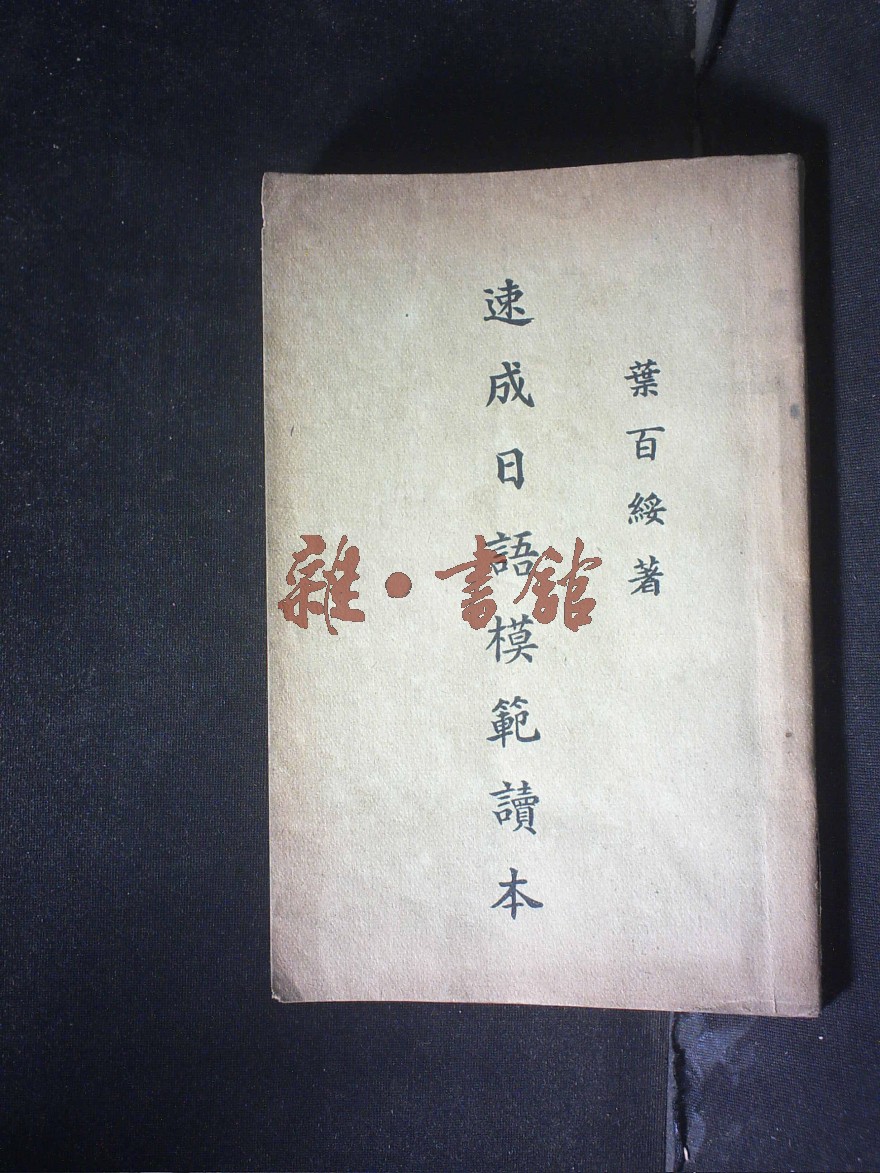 葉百綏著
速成日語模範讀本
雜·書館